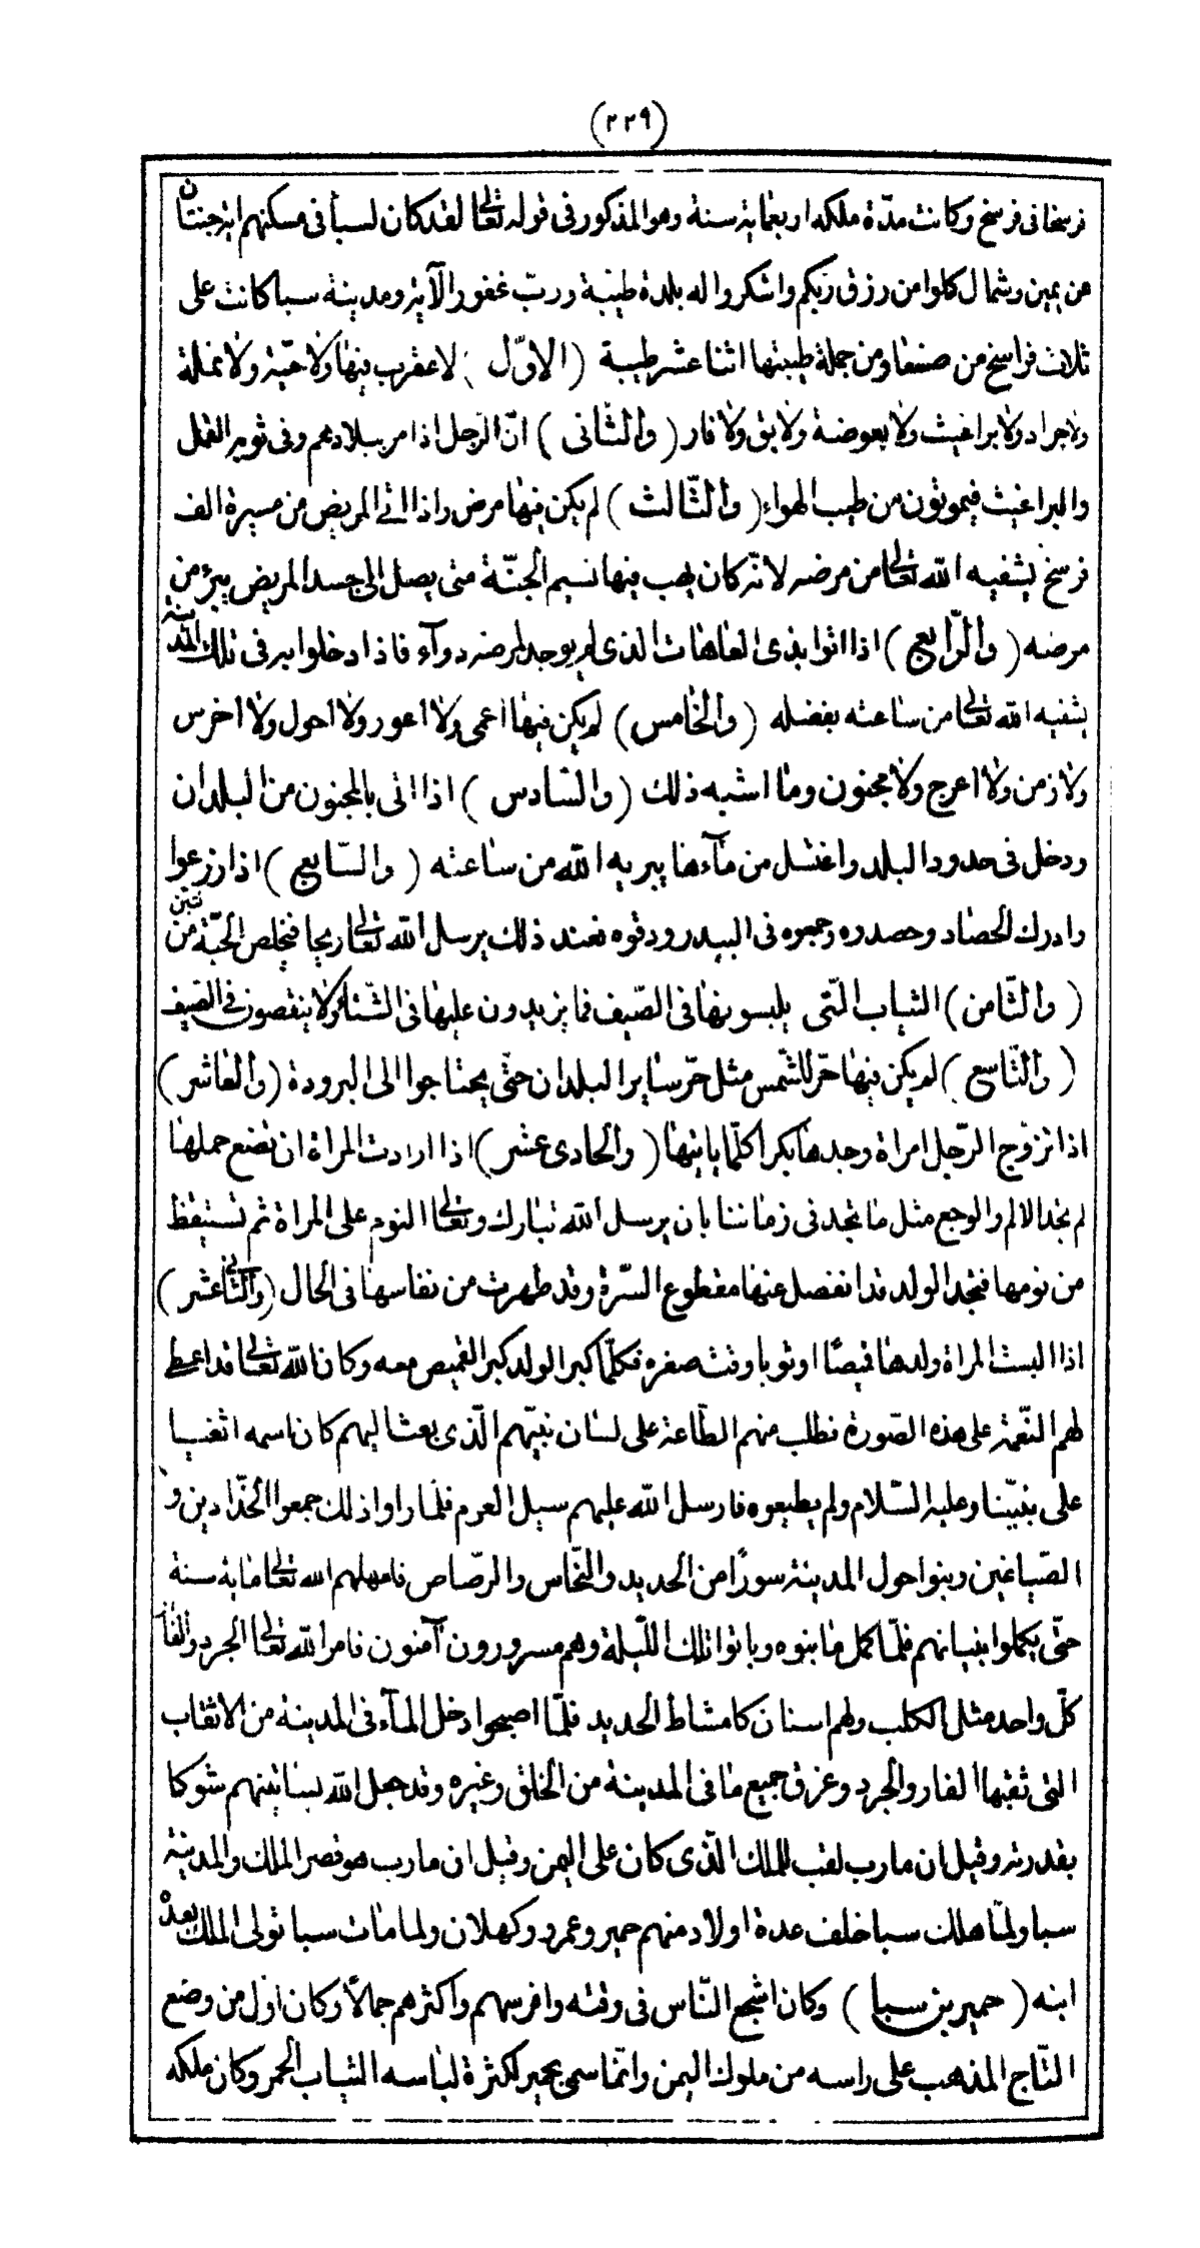 (٢٢٩)
فرسخا فى فرسخ وكانت مدّة ملكه اربعماية سنة وهو المذكور فى قوله تعالى لقد كان لسبأ فى مسكنهم اية جنتان
عن يمين وشمال كلوا من رزق ربكم واشكروا له بلدة طيّبة وربّ غفور الآية ومدينة سبا كانت على
ثلاث فراسخ من صنعا ومن جملة طيبتها اثنا عشر طيبة (الاوّل) لا عقرب فيها ولا حيّة ولا نملة
ولا جراد ولا براغيث ولا بعوضة ولا بق ولا فار (والثّانى) انّ الرّجل اذا مر ببلادهم وفى ثوبه القمل
والبراغيث فيموتون من طيب الهواء (والثّالث) لم يكن فيها مرض واذا اتى المريض من مسيرة الف
فرسخ يشفيه الله تعالى من مرضه لانّه كان يهب فيها نسيم الجنّة متى يصل الى جسد المريض يبرء من
مرضه (والرّابع) اذا اتوا بذى العاهات الذى لم يوجد لمرضه دوآء فاذا دخلوا به فى تلك المدينة
يشفيه الله تعالى من ساعته بفضله (والخامس) لم يكن فيها اعمى ولا اعور ولا احول ولا اخرس
ولا زمن ولا اعرج ولا مجنون وما اشبه ذلك (والسّادس) اذا اتى بالمجنون من البلدان
ودخل فى حدود البلد واغتسل من مآءها يبريه الله من ساعته (والسّابع) اذا زرعوا
وادرك الحصاد وحصدوه وجمعوه فى البيدر ودقوه فعند ذلك يرسل الله تعالى ريحا فيخلص الحبّة من تبن
(والثّامن) الثياب الّتى يلبسونها فى الصّيف فما يزيدون عليها فى الشّتاء ولا ينقصون فى الصّيف
(والتّاسع) لم يكن فيها حرّ للشّمس مثل حرّ ساير البلدان حتّى يحتاجوا الى البرودة (والعاشر)
اذا تزوّج الرّجل امراة وجدها بكرا كلّما ياتيها (والحادى عشر) اذا ارادت المراة ان تضع حملها
لم تجد الالم والوجع مثل ما تجد فى زماننا بان يرسل الله تبارك وتعالى النوم على المراة ثم تستيقظ
من نومها فتجد الولد قد انفصل عنها مقطوع السّرة وقد طهرت من نفاسها فى الحال (والثّانى عشر)
اذا البست المراة ولدها قيصًا او ثوبا وقت صغره فكلّما كبر الولد كبر القميص معه وكان الله تعالى قد اعطى
لهم النّعمة على هذه الصّورة فطلب منهم الطّاعة على لسان نبيّهم الّذى بعث اليهم كان اسمه اثفيا
على نبيّنا وعليه السّلام ولم يطيعوه فارسل الله عليهم سيل العرم فلمّا راوا ذلك جمعوا الحدّادين و
الصّباغين وبنوا حول المدينة سورًا من الحديد والنّحاس والرّصاص فامهلهم الله تعالى ماية سنة
حتّى يكملوا بنيانهم فلمّا كمل ما بنوه وباتوا تلك اللّيلة وهم مسرورون آمنون فامر الله تعالى الجرد والفار
كلّ واحد مثل الكلب ولهم اسنان كامشاط الحديد فلمّا اصبحوا دخل المآء فى المدينة من الاثقاب
التى ثقبها الفار والجرد وغرق جميع ما فى المدينة من الخلق وغيره وقد جعل الله بساتينهم شوكا
بقدرته وقيل ان مارب لقب للملك الّذى كان على اليمن وقيل ان مارب هو قصر الملك والمدينة
سبا ولمّا هلك سبا خلف عدة اولاد منهم حمير وعمرو وكهلان ولما مات سبا تولى الملك بعده
ابنه (حمير بن سبا) وكان اشجع النّاس فى وقته وافرسهم واكثرهم جمالاً وكان اوّل من وضع
التّاج المذهب على راسه من ملوك اليمن وانّما سمى بحمير لكثرة لباسه الثياب الحمر وكان ملكه